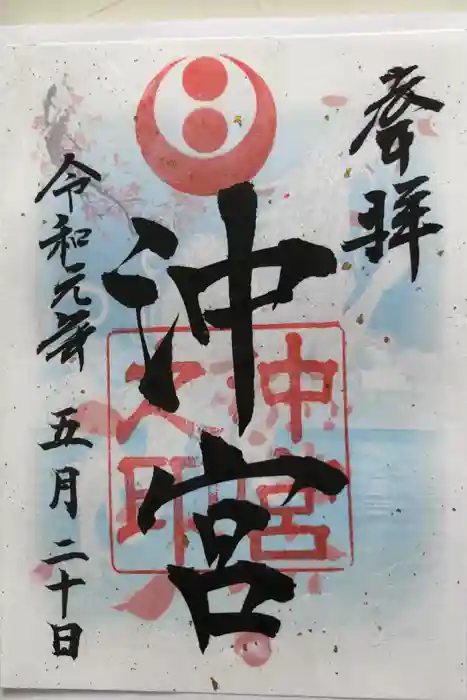 奉拝
沖宮
沖宮之印
令和元年
五月二十日